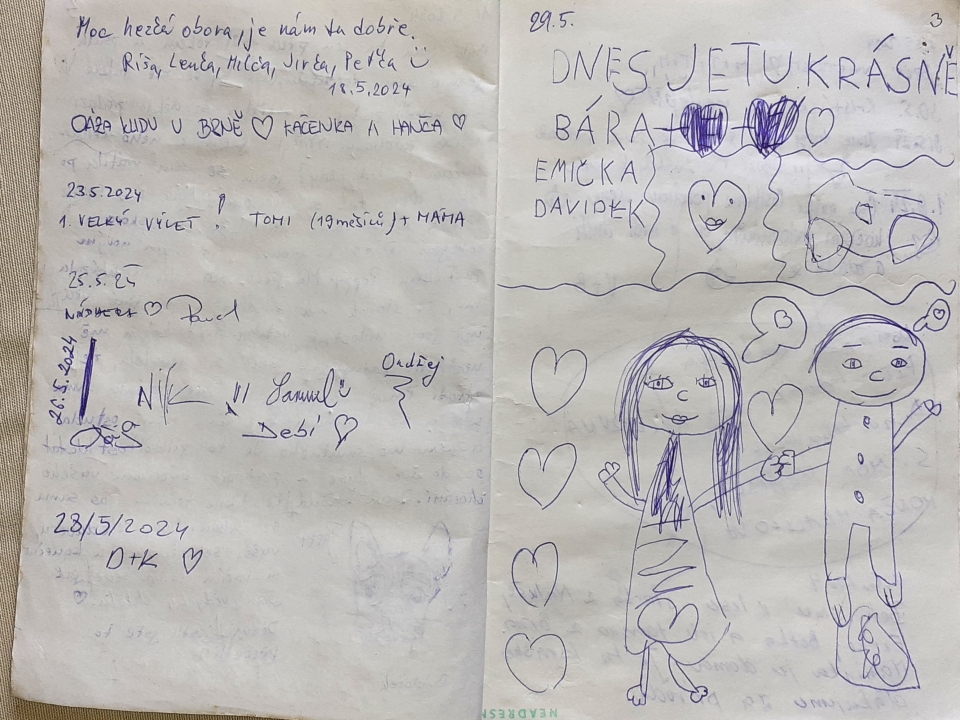 Moc hezčá obora, je nám tu dobře.
Ríša, Lenča, Milča, Jirča, Petča
18.5.2024
OAZA KLIDU U BRNĚ ♡ KAČENKA A HANČA ♡
23.5.2024
1. VELKÝ VÝLET ! TOMI (19měšiců) + MÁMA
25.5.24
♡ Pavel
26.5.2024
Nik
Samuel
Ondřej
Debi ♡
28/5/2024
D+K ♡
29.5.
3
DNES JE TU KRÁSNĚ
BÁRA
EMIČKA
DAVIDEK
NEADRESN